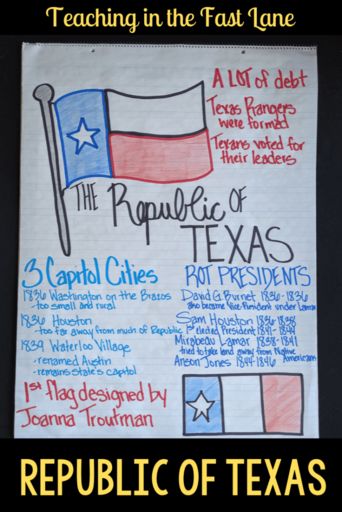 Teaching in the Fast Lane
A LOT of debt
Texas Rangers
were formed
Texans voted for
their leaders
THE Republic OF
TEXAS
3 Capitol Cities
1836 Washington on the Brazos
- too small and rural
1836 Houston
- too far away from much of Republic
1839 Waterloo Village
- renamed Austin
- remains state's capitol
1st flag designed by
Joanna Troutman
ROT PRESIDENTS
David G. Burnet 1836-1836
also became Vice-President under Lamar
Sam Houston 1836-1838
1st elected President 1841-1844
Mirabeau Lamar 1838-1841
tried to take land away from Native
Americans
Anson Jones 1844-1846
REPUBLIC OF TEXAS